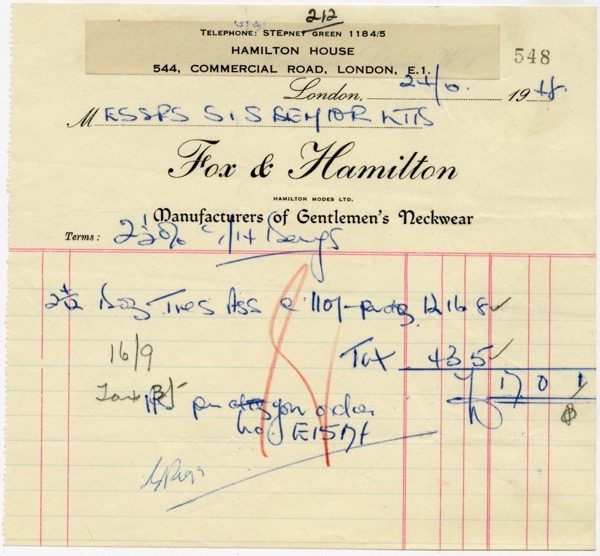 212
TELEPHONE: STEPNEY GREEN 1184/5
HAMILTON HOUSE
544, COMMERCIAL ROAD, LONDON, E.1.
548
London, 24/6. 1948
MESSRS S. & S BENJOR LTD
Fox & Hamilton
HAMILTON MODES LTD.
Manufacturers of Gentlemen's Neckwear
Terms: 2½%
2 4/12 Doz Ties Ass @ 110/- per doz 12 16 8 ✓
16/9 Tax 4 3 5 ✓
17 0 1
Tax 3/5 your order
no. E1517